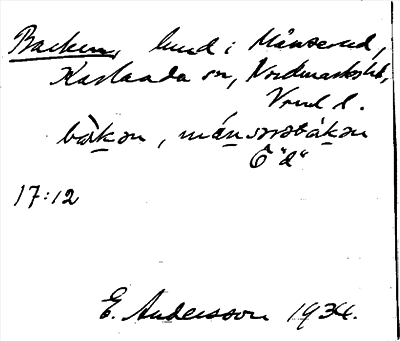 Backen, lund i Månserud,
Karlanda sn, Nordmarks hd,
Vrml l.
bàkən, mánsərəbákən
17:12
E. Andersson 1934.